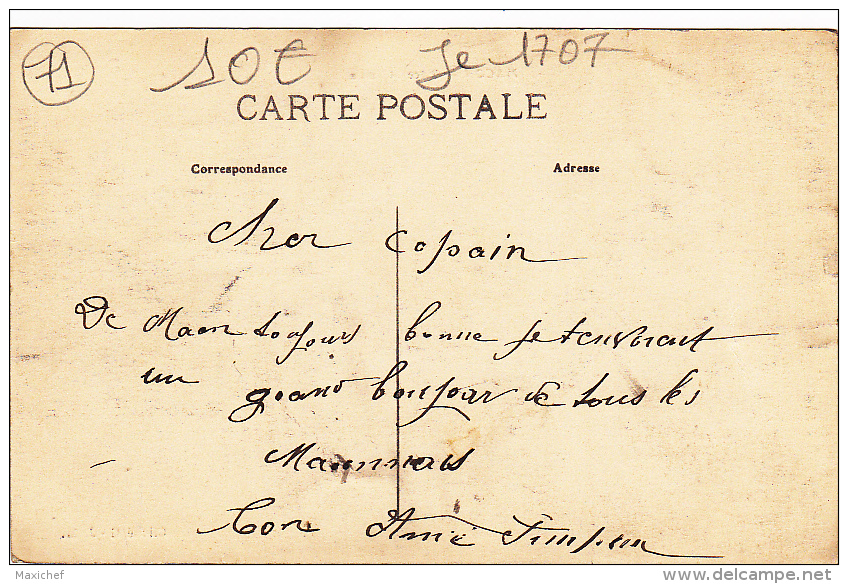 71 10€ Je 1707
CARTE POSTALE
Correspondance Adresse
Cher Copain
De Macon toujours bonne je t'envoieut
un grand bonjour de tous les
Ton Amie
Maxichef delcampe.net